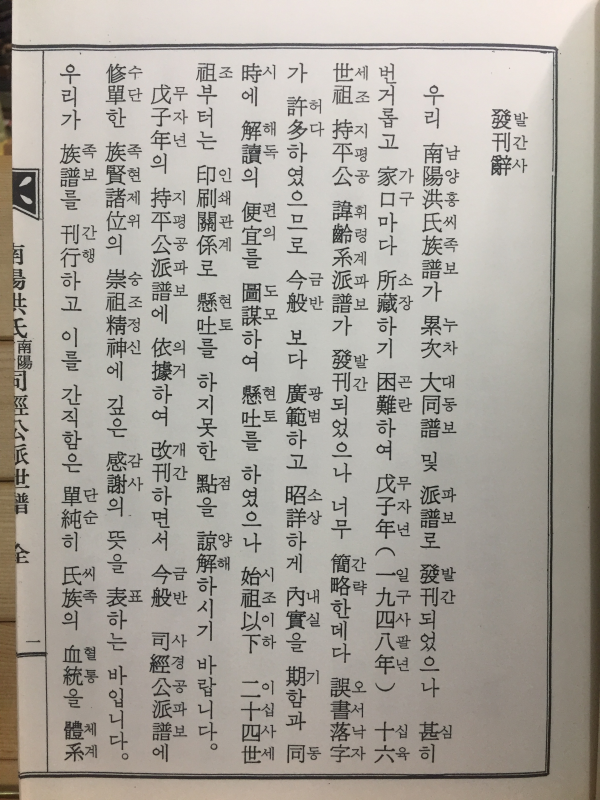 發刊辭
발간사
우리 南陽洪氏族譜가 累次 大同譜 및 派譜로 發刊되었으나 甚히
남양홍씨족보 누차 대동보 파보 발간 심
번거롭고 家口마다 所藏하기 困難하여 戊子年(一九四八年) 十六
가구 소장 곤란 무자년 일구사팔년 십육
世祖 持平公 諱齡系派譜가 發刊되었으나 너무 簡略한데다 誤書落字
세조 지평공 휘령계파보 발간 간략 오서낙자
가 許多하였으므로 今般 보다 廣範하고 昭詳하게 內實을 期함과 同
허다 금반 광범 소상 내실 기 동
時에 解讀의 便宜를 圖謀하여 懸吐를 하였으나 始祖以下 二十四世
시 해독 편의 도모 현토 시조이하 이십사세
祖부터는 印刷關係로 懸吐를 하지못한 點을 諒解하시기 바랍니다。
조 인쇄관계 현토 점 양해
戊子年의 持平公派譜에 依據하여 改刊하면서 今般 司經公派譜에
무자년 지평공파보 의거 개간 금반 사경공파보
修單한 族賢諸位의 崇祖精神에 깊은 感謝의 뜻을 表하는 바입니다。
수단 족현제위 숭조정신 감사 표
우리가 族譜를 刊行하고 이를 간직함은 單純히 氏族의 血統을 體系
족보 간행 단순 씨족 혈통 체계
南陽洪氏南陽司經公派世譜 全
一